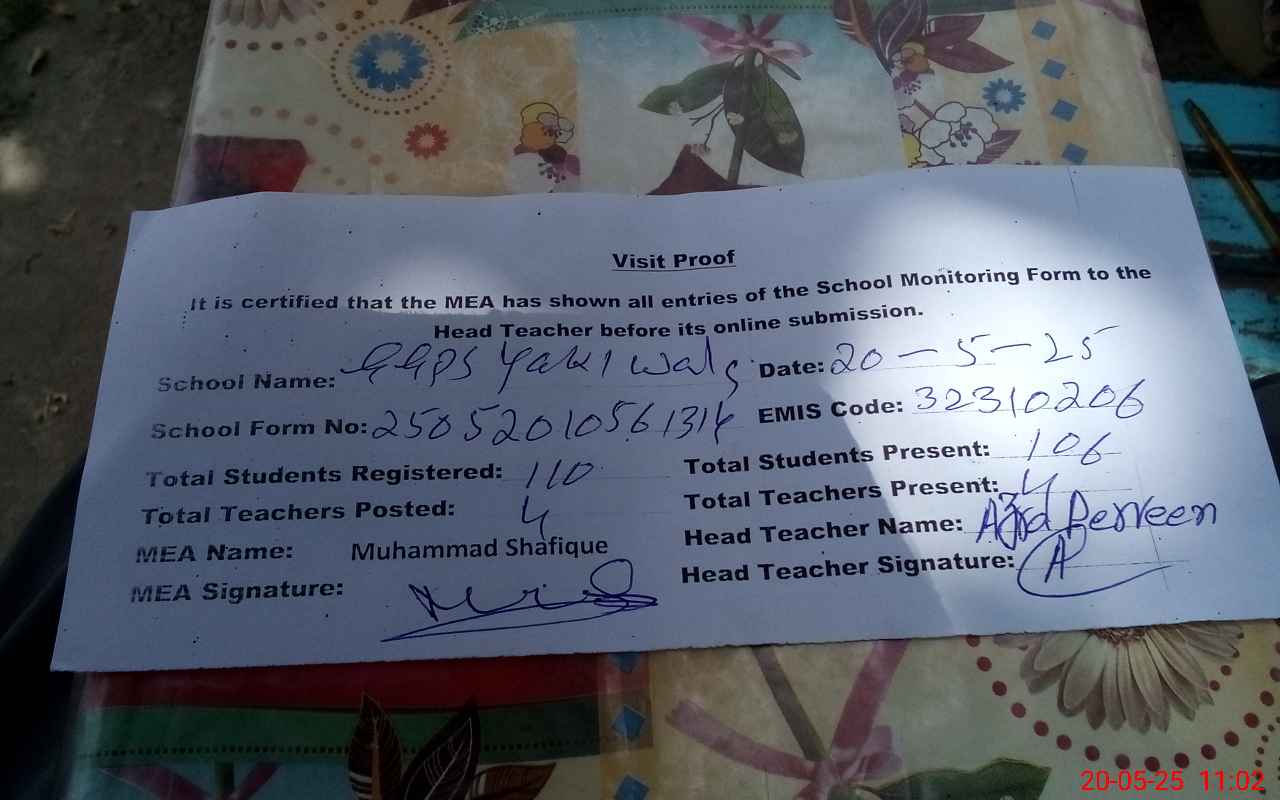 Visit Proof
It is certified that the MEA has shown all entries of the School Monitoring Form to the
Head Teacher before its online submission.
School Name: GGPS Yaki wala Date: 20-5-25
School Form No: 25052010561314 EMIS Code: 32310206
Total Students Registered: 110 Total Students Present: 106
Total Teachers Posted: 4 Total Teachers Present: 4
MEA Name: Muhammad Shafique Head Teacher Name: Azra Perveen
MEA Signature: Head Teacher Signature: A
20-05-25 11:02